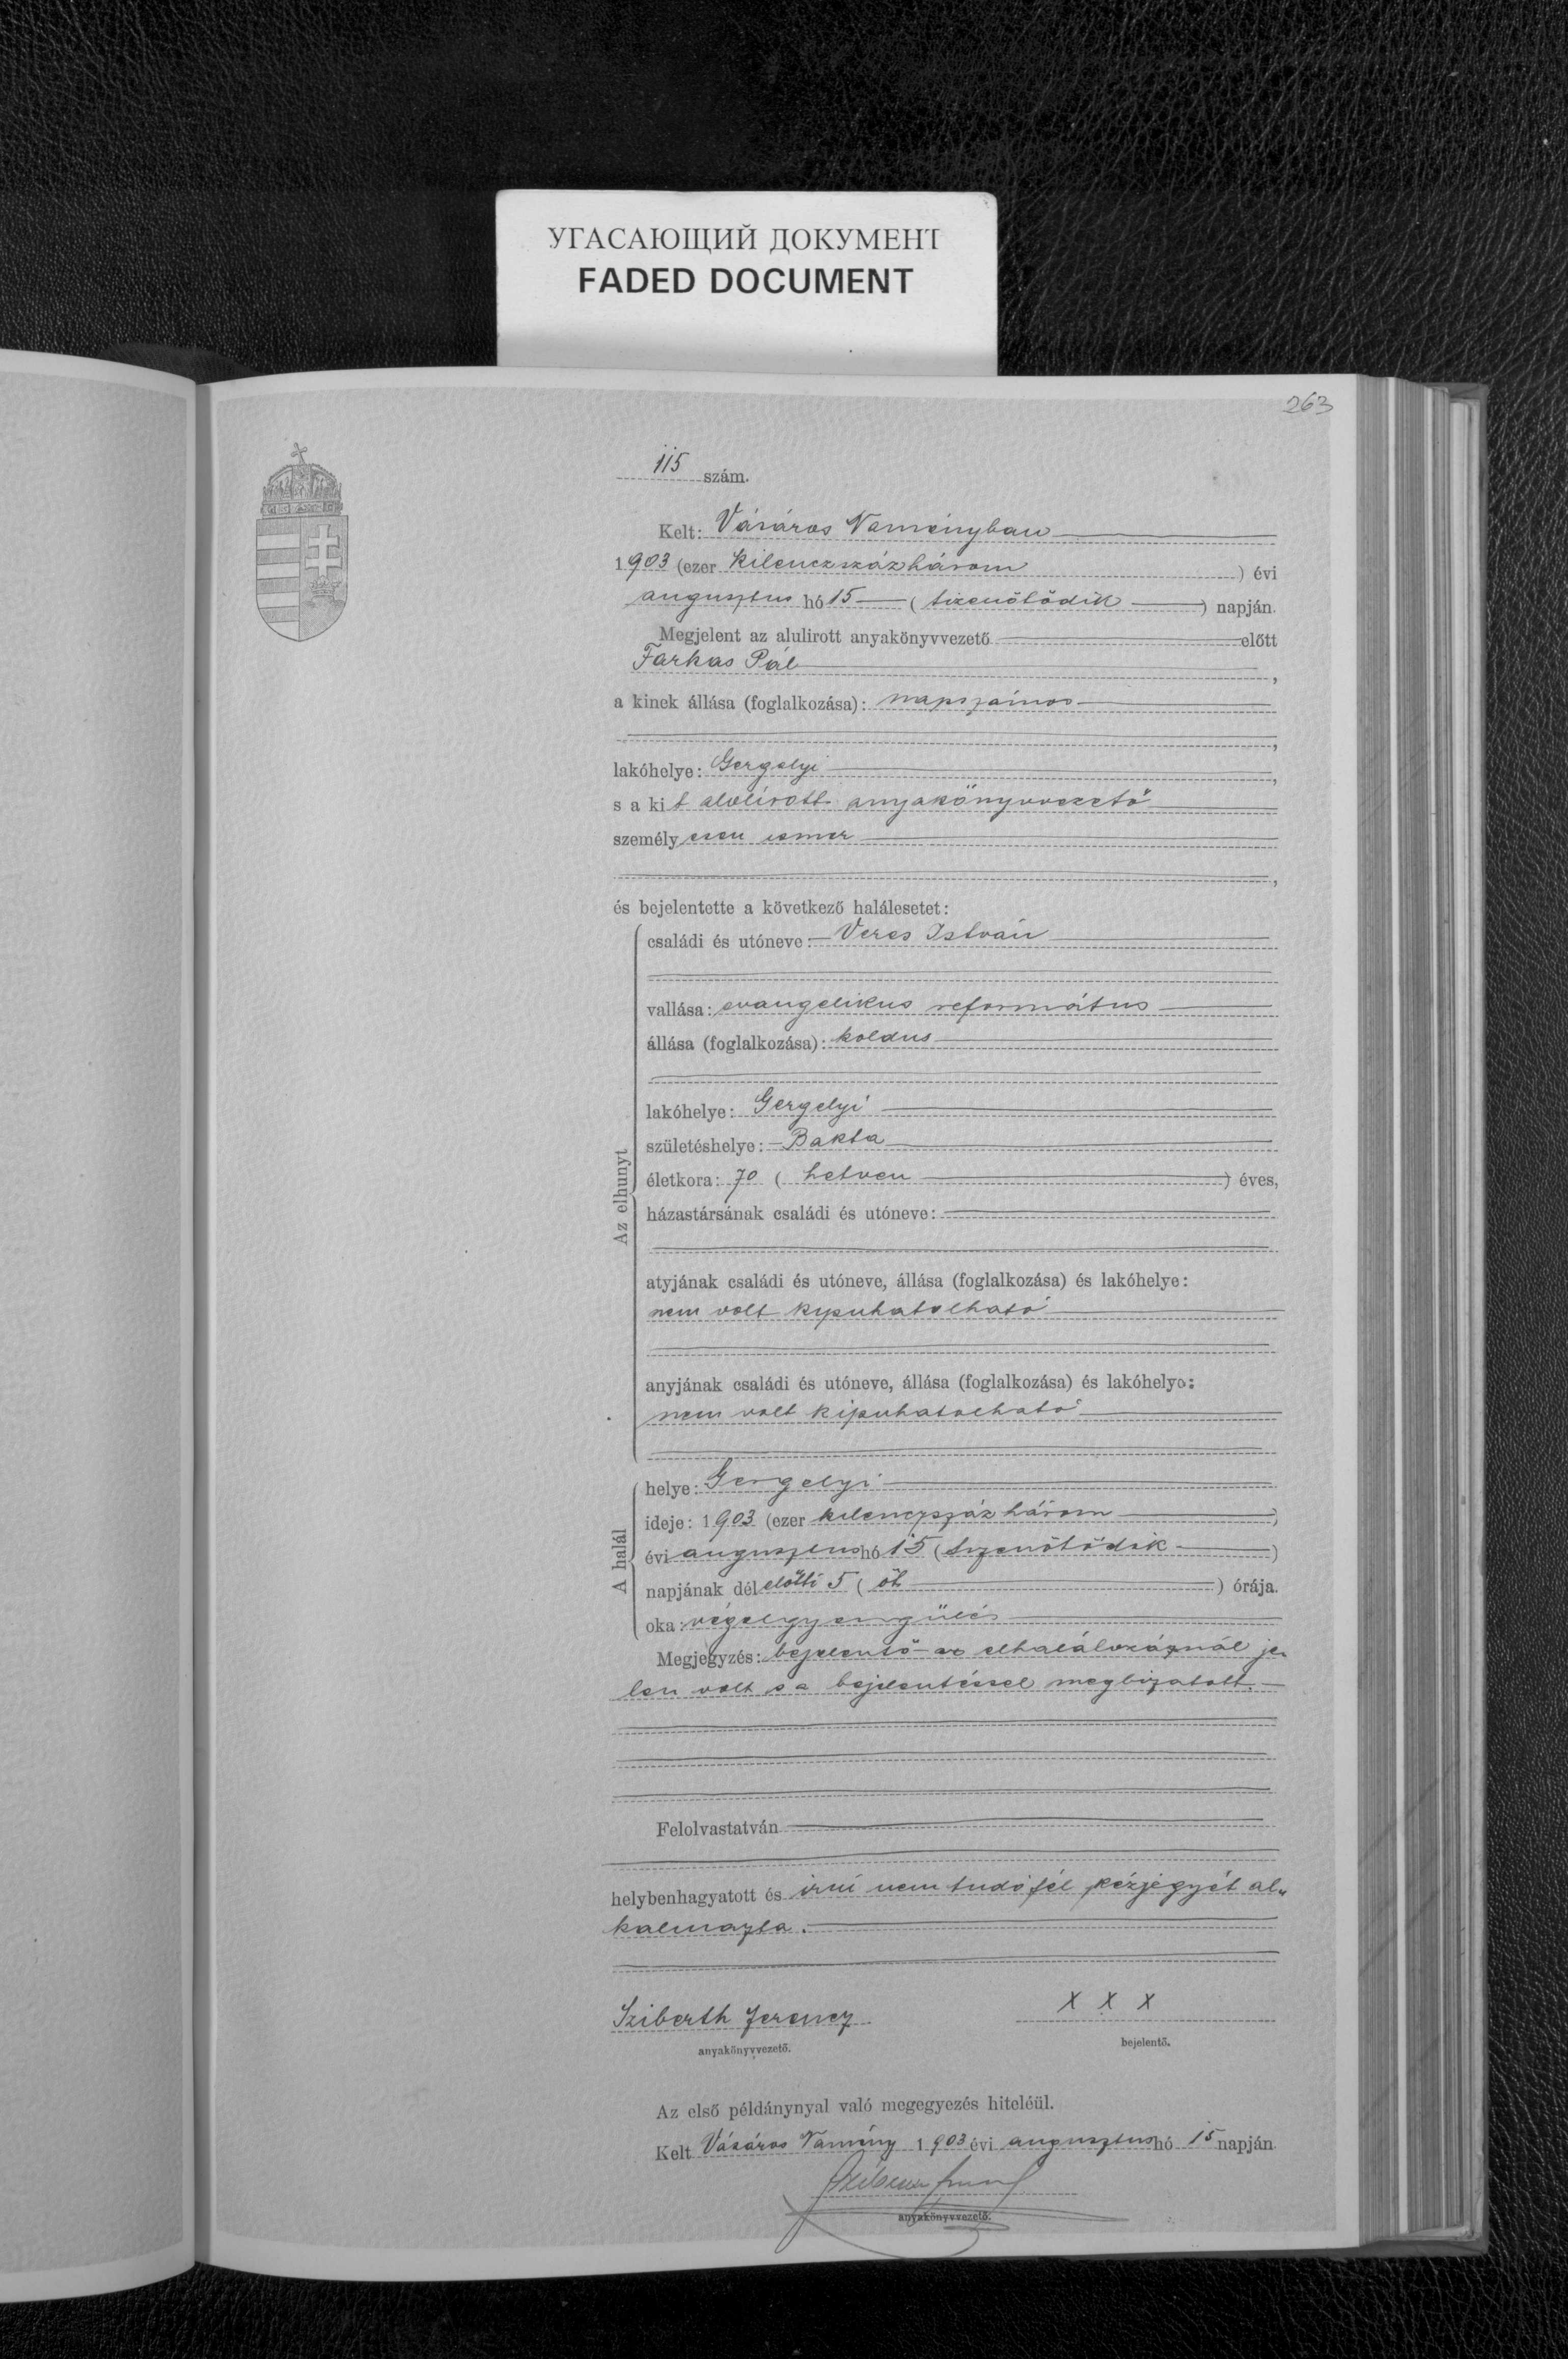 УГАСАЮЩИЙ ДОКУМЕНТ
FADED DOCUMENT
263
115 szám.
Kelt: Vásáros Naményban
1903 (ezer kilenczszázhárom ) évi
augusztus hó 15 ( tizenötödik ) napján.
Megjelent az alulirott anyakönyvvezető előtt
Farkas Pál ,
a kinek állása (foglalkozása): napszámos
,
lakóhelye: Gergelyi ,
s a kit alulirott anyakönyvvezető
személyesen ismer
,
és bejelentette a következő halálesetet:
Az elhunyt
családi és utóneve: Veres István
vallása: evangelikus református
állása (foglalkozása): koldus
lakóhelye: Gergelyi
születéshelye: Bakta
életkora: 70 ( hetven ) éves,
házastársának családi és utóneve:
atyjának családi és utóneve, állása (foglalkozása) és lakóhelye:
nem volt kipuhatolható
anyjának családi és utóneve, állása (foglalkozása) és lakóhelye:
nem volt kipuhatolható
A halál
helye: Gergelyi
ideje: 1903 (ezer kilenczszáz három )
évi augusztus hó 15 ( tizenötödik )
napjának dél előtti 5 ( öt ) órája.
oka: végelgyengülés
Megjegyzés: bejelentő az elhalálozásnál je„
len volt s a bejelentéssel megbizatott.
Felolvastatván
helybenhagyatott és irni nem tudó fél kézjegyét al„
kalmazta.
Sziberth Ferencz x x x
anyakönyvvezető. bejelentő.
Az első példánynyal való megegyezés hiteléül.
Kelt Vásáros Namény 1903 évi augusztus hó 15 napján
anyakönyvvezető.